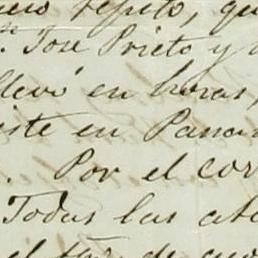 repito, qu
José Prieto y
llevó en horas,
iste en Pana
. Por el cor
Todas las ate
el de